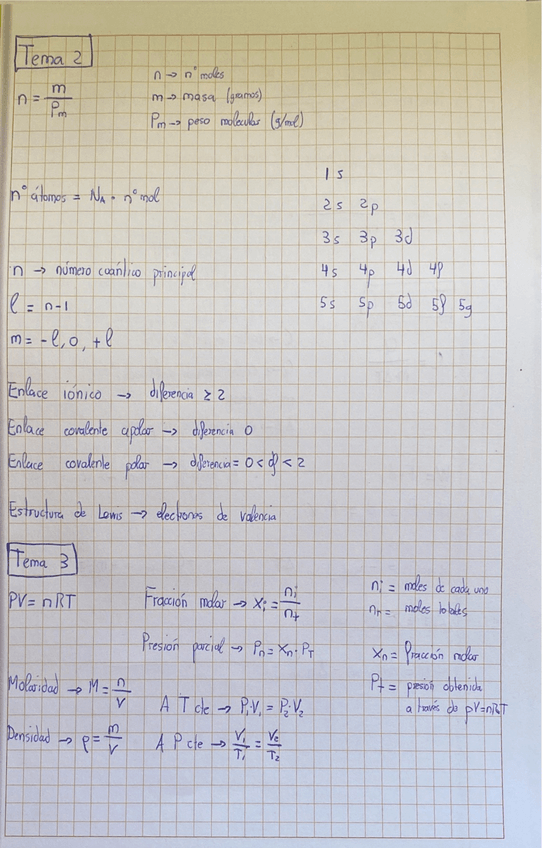 Tema 2
n = m / Pm
n → nº moles
m → masa (gramos)
Pm → peso molecular (g/mol)
nº átomos = NA · nº mol
1s
2s 2p
3s 3p 3d
4s 4p 4d 4f
5s 5p 5d 5f 5g
n → número cuántico principal
l = n-1
m = -l, 0, +l
Enlace iónico → diferencia ≥ 2
Enlace covalente apolar → diferencia 0
Enlace covalente polar → diferencia = 0 < df < 2
Estructura de Lewis → electrones de valencia
Tema 3
PV = nRT
Fracción molar → Xi = ni / nt
ni = moles de cada uno
nn = moles totales
Presión parcial → Pn = Xn · PT
Xn = fracción molar
Pt = presión obtenida
a través de pV=nRT
Molaridad → M = n / V
A T cte → P1·V1 = P2·V2
Densidad → ρ = m / V
A P cte → V1 / T1 = V2 / T2